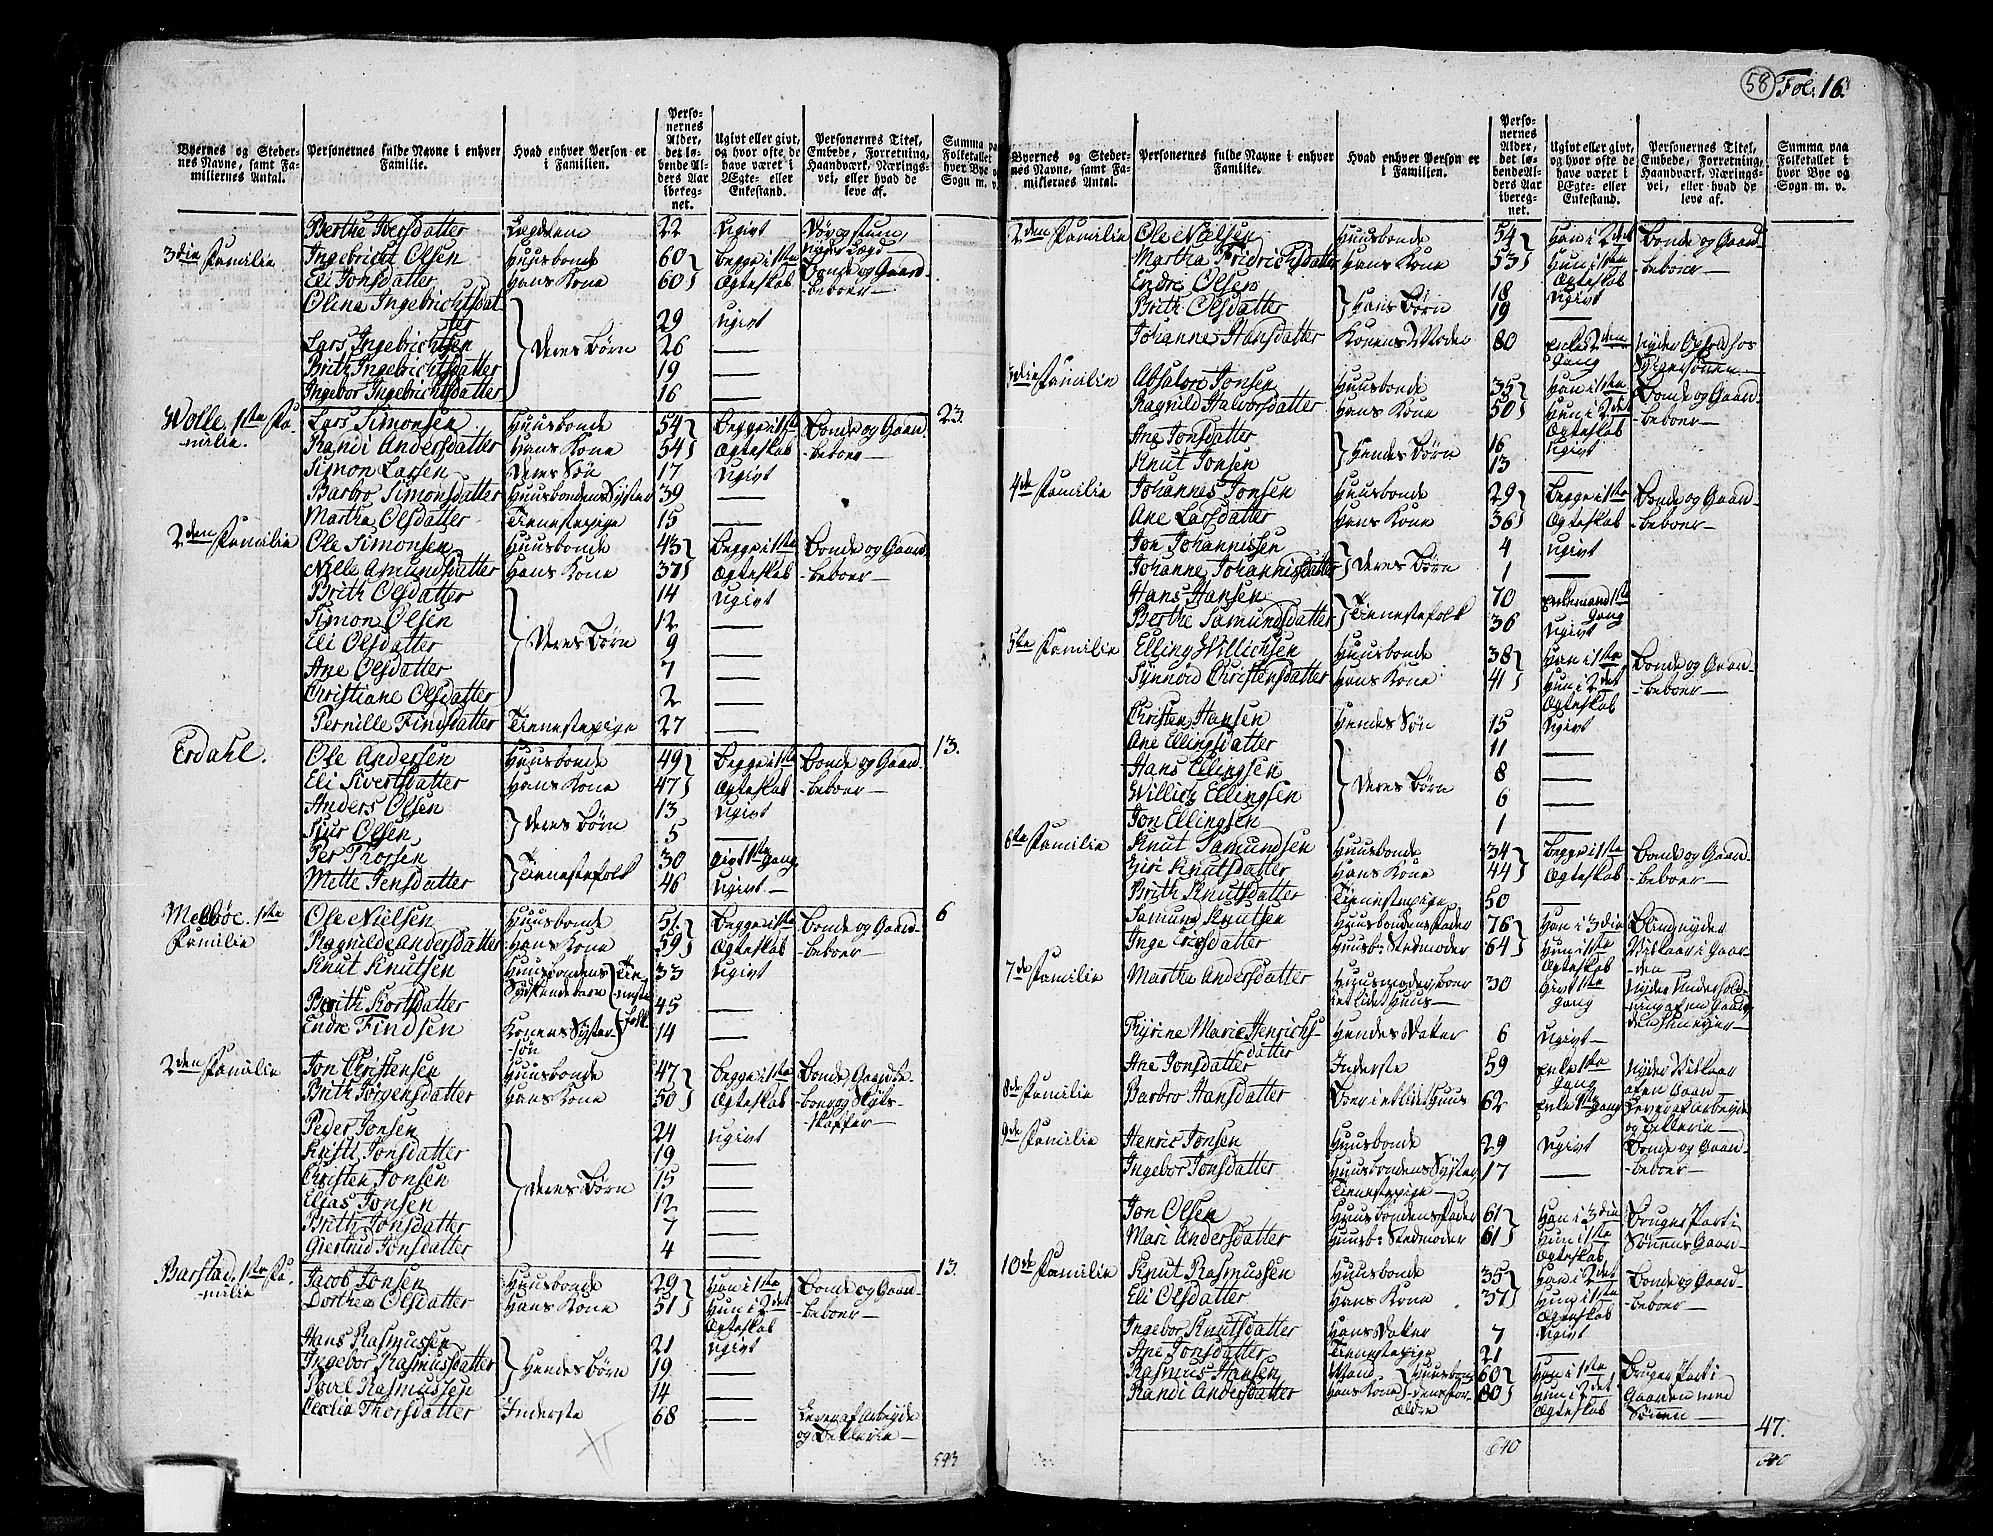 58 Fol: 16.
Byernes og Steder-
nes Navne, samt Fa-
miliernes Antal.
Personernes fulde Navne i enhver
Familie.
Hvad enhver Person er
i Familien.
Perso-
nernes
Alder,
det lø-
bende Al-
ders Aar
iberegnet.
Ugivt eller givt,
og hvor ofte de
have været i
Ægte- eller
Enkestand.
Personernes Titel,
Embede, Forretning,
Haandværk, Nærings-
vei, eller hvad de
leve af.
Summa paa
Folketallet i
hver Bye og
Sogn m. v.
Berthe Iversdatter 22 Ugivt
3die Familie Ingebricht Olsen Huusbonde 60 Begge i 1ste Bonde og Gaard-
Eli Jonsdatter Hans Kone 60 Ægteskab beboer
Olina Ingebrichtsdat-
ter 29 Ugivt
Lars Ingebrichtsen Deres Børn 26 —
Brith Ingebrichtsdatter 19 —
Ingebor Ingebrichtsdatter 16 —
Wolle. 1ste Fa- Lars Simonsen Huusbonde 54 Begge i 1ste Bonde og Gaard- 23.
milie. Randi Andersdatter Hans Kone 54 Ægteskab -beboer
Simon Larsen Deres Søn 17 Ugivt
Barbro Simonsdatter Huusbondens Syster 39 —
Martha Olsdatter Tienestepige 15 —
2den Familie Ole Simonsen Huusbonde 43 Begge i 1ste Bonde og Gaard-
Nille Amundsdatter Hans Kone 37 Ægteskab -beboer
Brith Olsdatter 14 Ugivt
Simon Olsen 12 —
Eli Olsdatter Deres Børn 9 —
Ane Olsdatter 7 —
Christiane Olsdatter 2 —
Pernille Findsdatter Tienestepige 27 —
Erdahl. Ole Andersen Huusbonde 49 Begge i 1ste Bonde og Gaard- 13.
Eli Sivertsdatter Hans Kone 47 Ægteskab -beboer
Anders Olsen Deres Børn 13 Ugivt
Siur Olsen 5 —
Per Thorsen Tienestefolk 30 Givt 1ste Gang
Mette Jensdatter 46 Ugivt
Melbøe. 1ste Ole Nielsen Huusbonde 51 Begge i 1ste Bonde og Gaard- 6
Familie Ragnilde Andersdatter Hans Kone 59 Ægteskab -beboer
Knut Knutsen Huusbondens Tie- 33 Ugivt
Sydskendebarn neste-
Brith Korsdatter folk 45 —
Endre Findsen Konens Syster- 14 —
søn
2den Familie Jon Christensen Huusbonde 47 Begge i 1ste Bonde Gaardbe-
Brith Jørgensdatter Hans Kone 50 Ægteskab boer og Skyts-
skaffer
Peder Jonsen 24 Ugivt
Kristi Jonsdatter 19 —
Christen Jonsen Deres Børn 15 —
Elias Jonsen 12 —
Brith Jonsdatter 7 —
Giertrud Jonsdatter 4 —
Barstad. 1ste Fa- Jacob Jonsen Huusbonde 29 Han i 1ste Bonde og Gaard- 13
milie Dorthea Olsdatter Hans Kone 51 Hun i 2det -beboer
Ægteskab
Hans Rasmussen 21 Ugivt
Ingebor Rasmusdatter Hendes Børn 19 —
Povel Rasmussen 14 —
Cecilia Thorsdatter Inderste 68 — Lever af Arbeyde
og Betlerie
593
Byernes og Steder-
nes Navne, samt Fa-
miliernes Antal.
Personernes fulde Navne i enhver
Familie.
Hvad enhver Person er
i Familien.
Perso-
nernes
Alder,
det lø-
bende Al-
ders Aar
iberegnet.
Ugivt eller givt,
og hvor ofte de
have været i
Ægte- eller
Enkestand.
Personernes Titel,
Embede, Forretning,
Haandværk, Nærings-
vei, eller hvad de
leve af.
Summa paa
Folketallet i
hver Bye og
Sogn m. v.
2den Familie Ole Nielsen Huusbonde 54 Han i 2det Bonde og Gaard-
Martha Fridrichsdatter Hans Kone 53 Hun i 1ste -beboer
Endre Olsen 18 Ægteskab
Ugivt
Brith Olsdatter Hans Børn 19 —
Johanne Hansdatter Konens Moder 80 Enke 2den
Gang
3die Familie Absalon Jonsen Huusbonde 35 Han i 1ste Bonde og Gaard-
Ragnild Halvorsdatter Hans Kone 50 Hun i 2det -beboer
Ægteskab
Ane Jonsdatter Hendes Børn 16 Ugivt
Knut Jonsen 13 —
4de Familie Johannes Jonsen Huusbonde 29 Begge i 1ste Bonde og Gaard-
Ane Larsdatter Hans Kone 36 Ægteskab -beboer
Jon Johannissen Deres Børn 4 Ugivt
Johanne Johannisdatter 1 —
Hans Hansen Tienestefolk 70 Enkemand 1ste
Gang
Berthe Samundsdatter 36 Ugivt
5te Familie Elling Willichsen Huusbonde 38 Han i 1ste Bonde og Gaard-
Synnøv Christensdatter Hans Kone 41 Hun i 2det -beboer
Ægteskab
Christen Hansen Hendes Søn 15 Ugivt
Ane Ellingsdatter 11 —
Hans Ellingsen Deres Børn 8 —
Willich Ellingsen 6 —
Jon Ellingsen 1 —
6te Familie Knut Samundsen Huusbonde 34 Begge i 1ste Bonde og Gaard-
Giri Knutsdatter Hans Kone 44 Ægteskab -beboer
Brith Knutsdatter Tienestepige 50 —
Samund Knutsen Huusbondens Fader 76 Han i 3die
Inge Eriksdatter Huusb: Stedmoder 64 Hun i 1ste Vilkaar i Gaar-
Ægteskab den
7de Familie Martha Andersdatter Huusmoder, boer 30 Givt 1ste Nyder Underhold-
i et lidet Huus Gang ning af en Gaard
Thrine Marie Henrichs- Hendes Datter 6 Ugivt
datter
Ane Jonsdatter Inderste 59 Enke 1ste Nyder Vilkaar
Gang af en Gaard
8de Familie Barbro Hansdatter Boer i et lidet Huus 62 Enke 1ste Gang Lever af Arbeyde
og Betlerie
9de Familie Henrik Jonsen Huusbonde 29 Ugivt Bonde og Gaard-
Ingebor Jonsdatter Huusbondens Syster 17 — -beboer
Tienestepige
Jon Olsen Huusbondens Fader 61 Han i 3die Bruger Part i
Mari Andersdatter Huusb: Stedmoder 61 Hun i 1ste Sønnens Gaard
Ægteskab
10de Familie Knut Rasmussen Huusbonde 35 Han i 2det Bonde og Gaard-
Eli Olsdatter Hans Kone 37 Hun i 1ste -beboer
Ægteskab
Ingebor Knutsdatter Hans Datter 7 Ugivt
Ane Jonsdatter Tienestepige 21 —
Rasmus Hansen Mand Huusbon- 60 Han i 1ste Bruger Part i
Randi Andersdatter Hans Kone dens For- 80 Hun i 2det Gaarden med
ældre Ægteskab Sønnen
47.
640 640